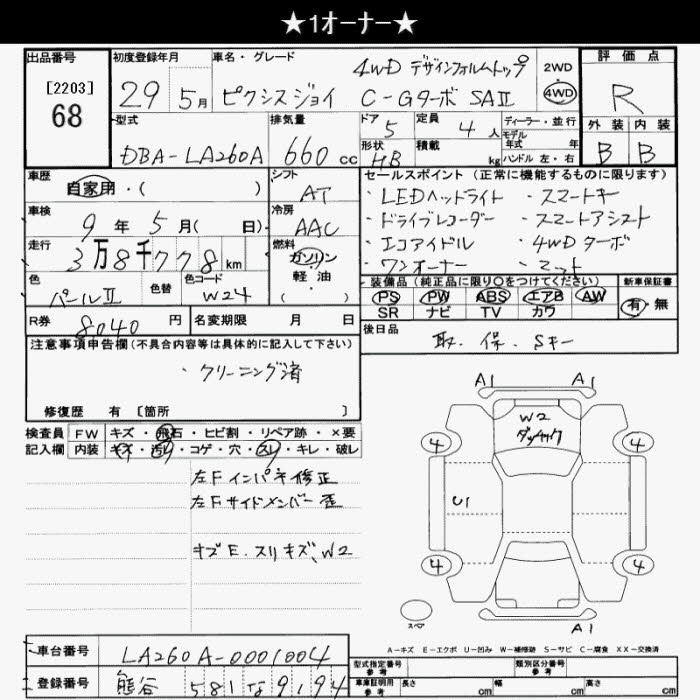 ★1オーナー★
出品番号
[2203]
68
初度登録年月
29 5月
車名・グレード
4WD デザインフィルムトップ
ピクシスジョイ C-Gターボ SAⅡ
2WD
4WD
評価点
R
外装 内装
B B
型式
DBA-LA260A
排気量
660 cc
ドア 5
形状 HB
定員 4 人
積載 kg
ディーラー・並行
モデル年式 年
ハンドル 左・右
車歴
自家用・( )
シフト
AT
車検
9年 5月( 日)
冷房
AAC
走行
3万8千778km
燃料
ガソリン
軽油
( )
色
パールⅡ
色替
色コード
W24
R券 8040 円
名変期限 月 日
セールスポイント(正常に機能するものに限り)
・LEDヘッドライト ・スマートキー
・ドライブレコーダー ・スマートアシスト
・エコアイドル ・4WDターボ
・ワンオーナー ・マット
装備品(純正品に限り○をつけてください)
PS PW ABS エアB AW
SR ナビ TV カワ
新車保証書
有・無
後日品
取.保.Sキー
注意事項申告欄(不具合内容等は具体的に記入して下さい)
・クリーニング済
修復歴 有 [箇所 ]
検査員記入欄
FW キズ・飛石・ヒビ割・リペア跡・×要
内装 キズ・汚れ・コゲ・穴・スレ・キレ・破レ
左Fインパネ修正
左Fサイドメンバー歪
キズE.スリキズ、W2
A1
W2
4 4
U1
4 4
A1
スペア
A-キズ E-エクボ U-凹み W-補修跡 S-サビ C-腐食 XX-交換済
車台番号 LA260A-0001004
登録番号 熊谷 581 な 9194
型式指定番号 参考
類別区分番号 参考
車庫証明用 参考 長さ cm 幅 cm 高さ cm